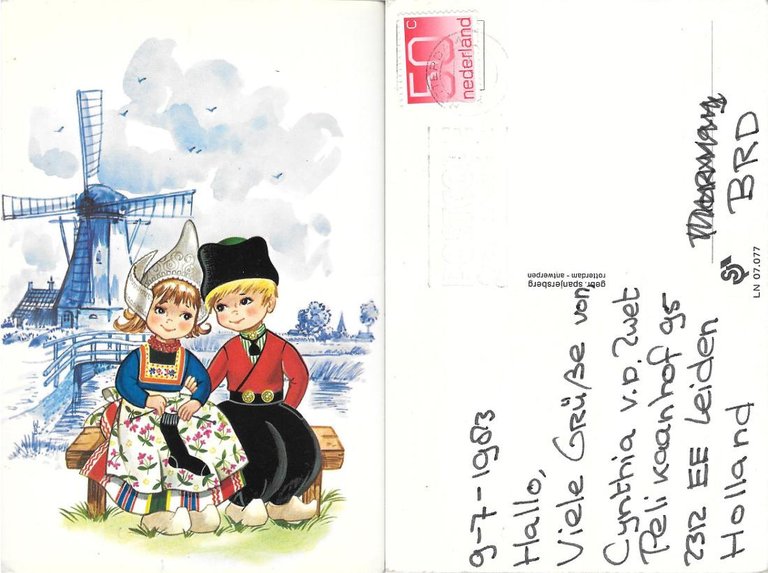 9-7-1983
Hallo,
Viele Grüße von
Cynthia v.D. Zwet
Pelikaanhof 95
2312 EE Leiden
Holland
gebr. spanjersberg
rotterdam - antwerpen
50 c
nederland
BRD
LN 07.077